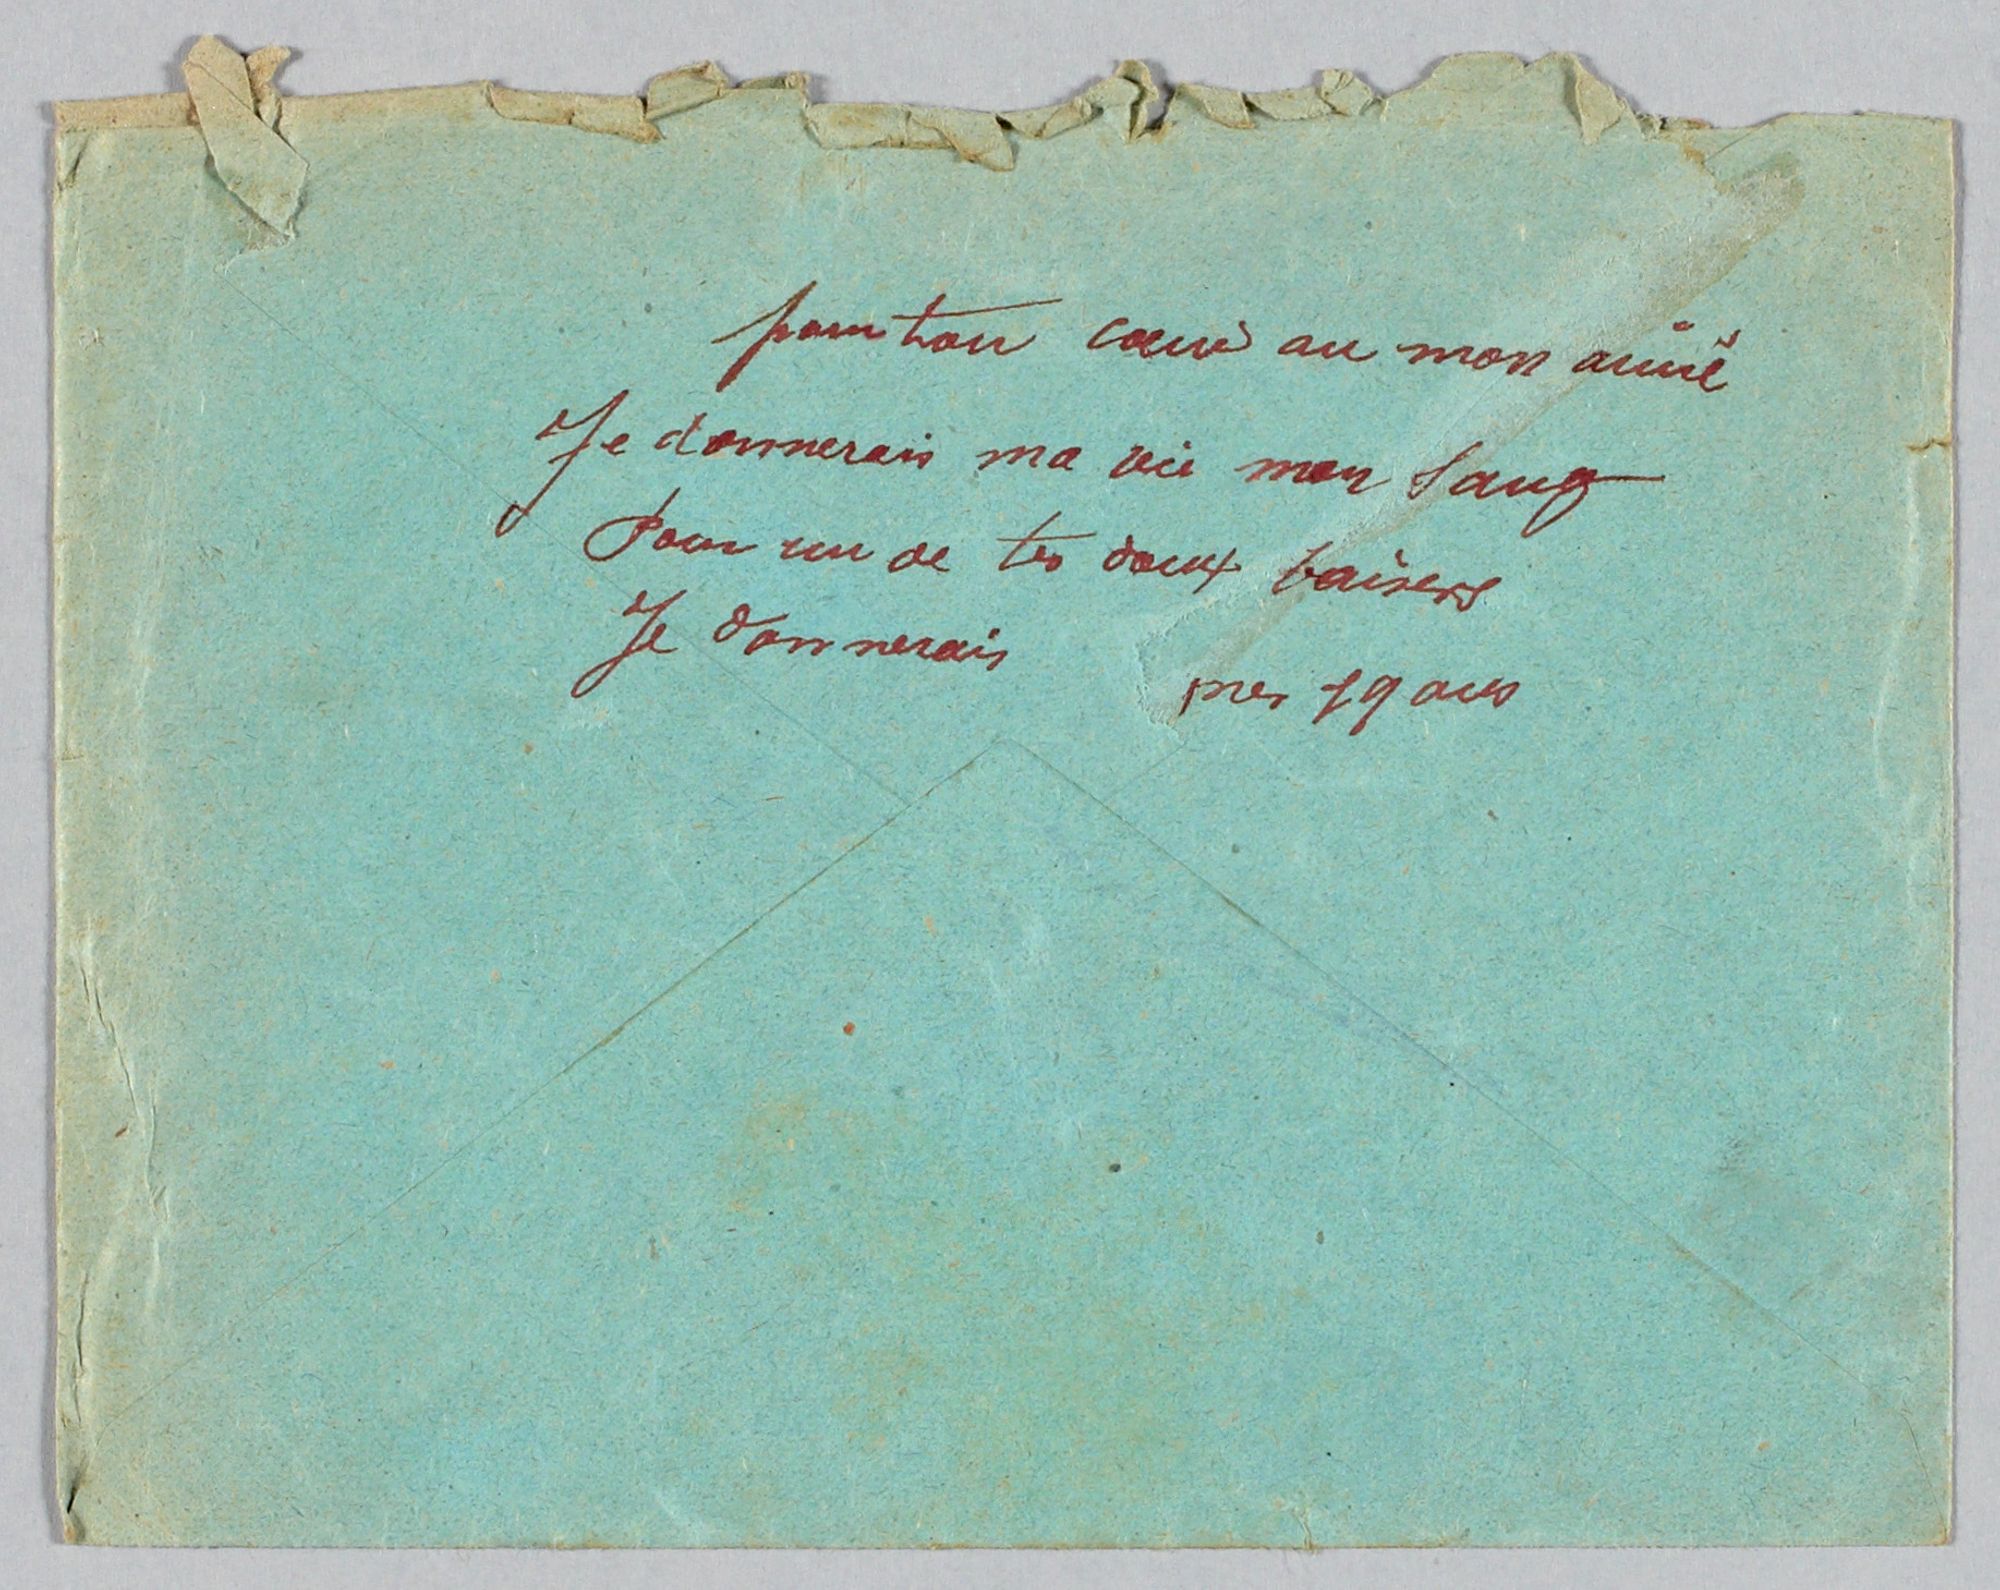 pour ton cœur au mon aimé
Je donnerais ma vie mon sang
Pour un de tes doux baisers
Je donnerais mes 19 ans